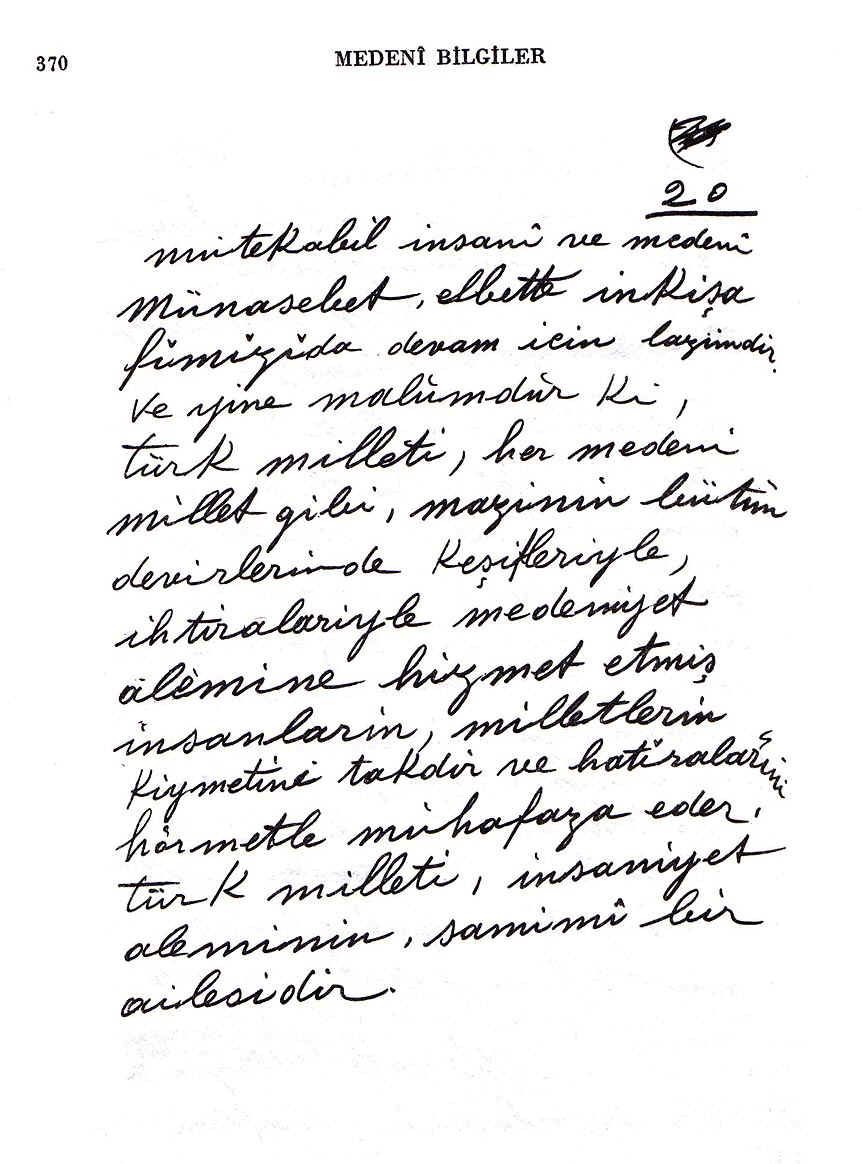 370
MEDENÎ BİLGİLER
20
mütekabil insanî ve medenî
münasebet, elbette inkişa
fımızıda devam için lazımdır.
Ve yine malûmdur ki,
türk milleti, her medeni
millet gibi, mazinin bütün
devirlerinde keşifleriyle,
ihtiralariyle medeniyet
alemine hizmet etmiş
insanların, milletlerin
kıymetini takdir ve hatıralarını
hörmetle muhafaza eder.
türk milleti, insaniyet
aleminin, samimî bir
ailesidir.